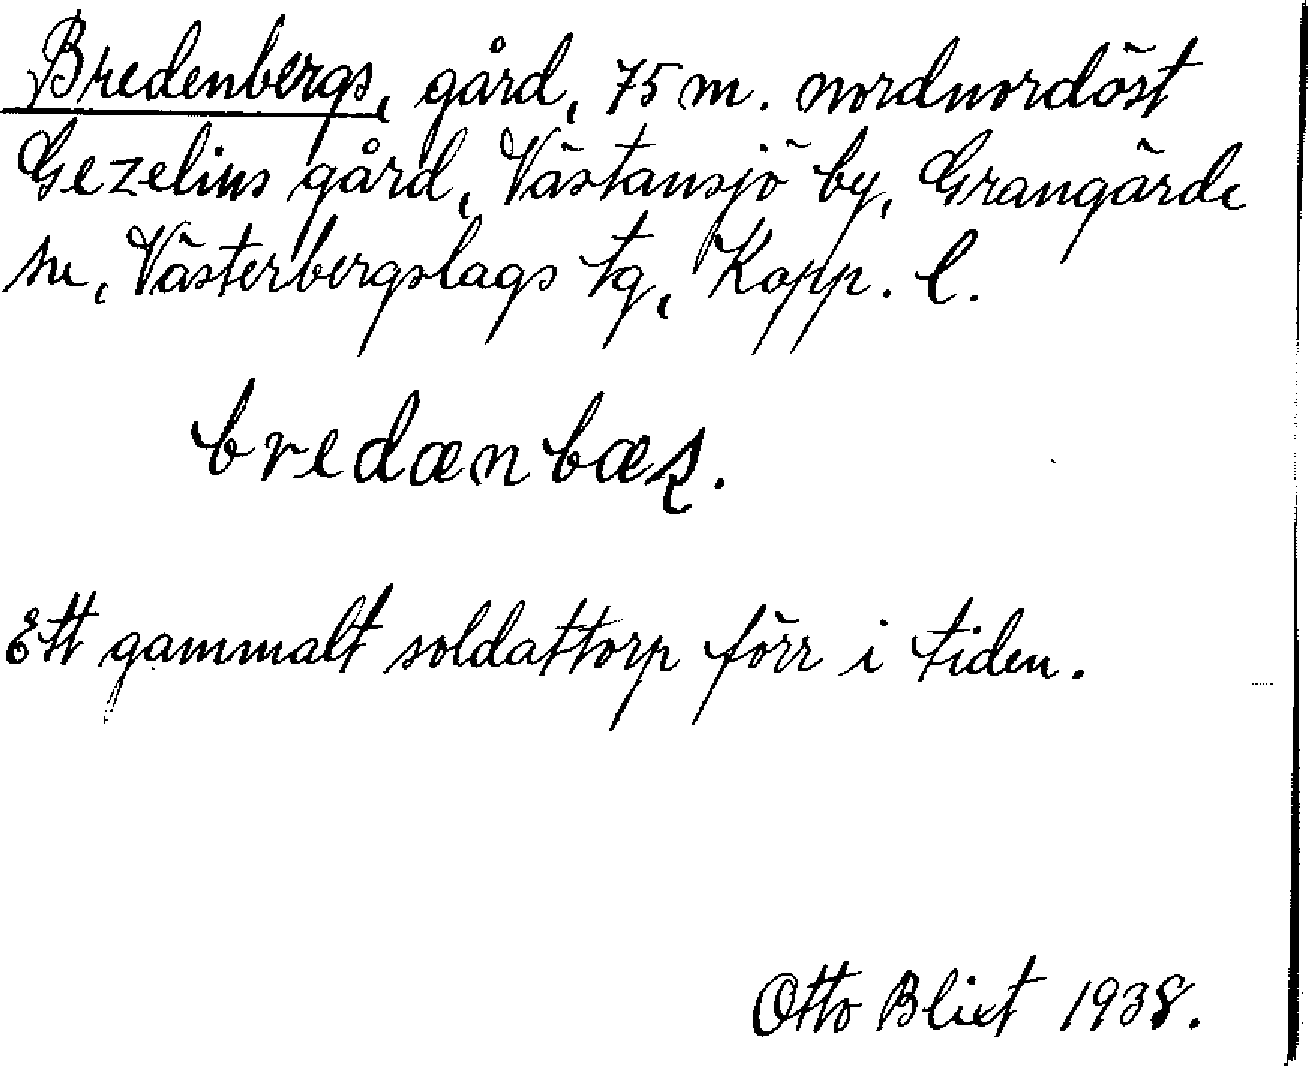 Bredenbergs, gård, 75 m. nordnordöst
Gezelius gård, Västansjö by, Grangärde
sn, Västerbergslags tg, Kopp. l.
bredænbæʂ.
Ett gammalt soldattorp förr i tiden.
Otto Blixt 1938.